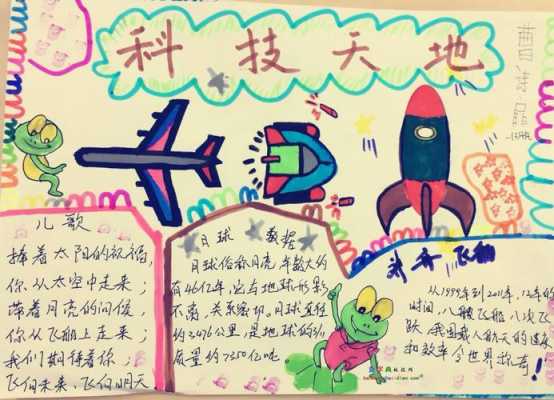 科技天地
儿歌
捧着太阳的祝福,
你从太空中走来;
带着月亮的问候,
你从飞船上走来;
我们期待着你;
飞向未来,飞向明天
月球 数据
月球俗称月亮,年数大约
有46亿年,它与地球形影
不离,关系密切,月球直径
约3476公里,是地球的3/11
质量约7350亿吨
神舟飞船
从1999年到2011年,12年的
时间,八艘飞船,八次飞
跃,我国载人航天的速度
和效率令世界称奇!